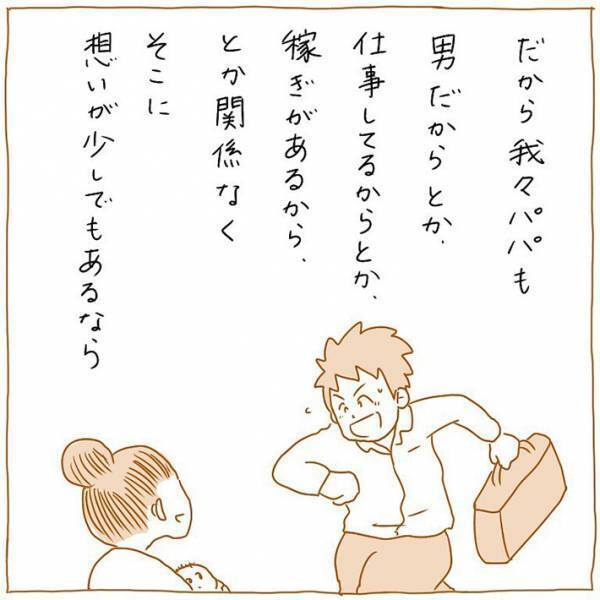 だから我々パパも
男だからとか、
仕事してるからとか、
稼ぎがあるから、
とか関係なく
そこに
想いが少しでもあるなら